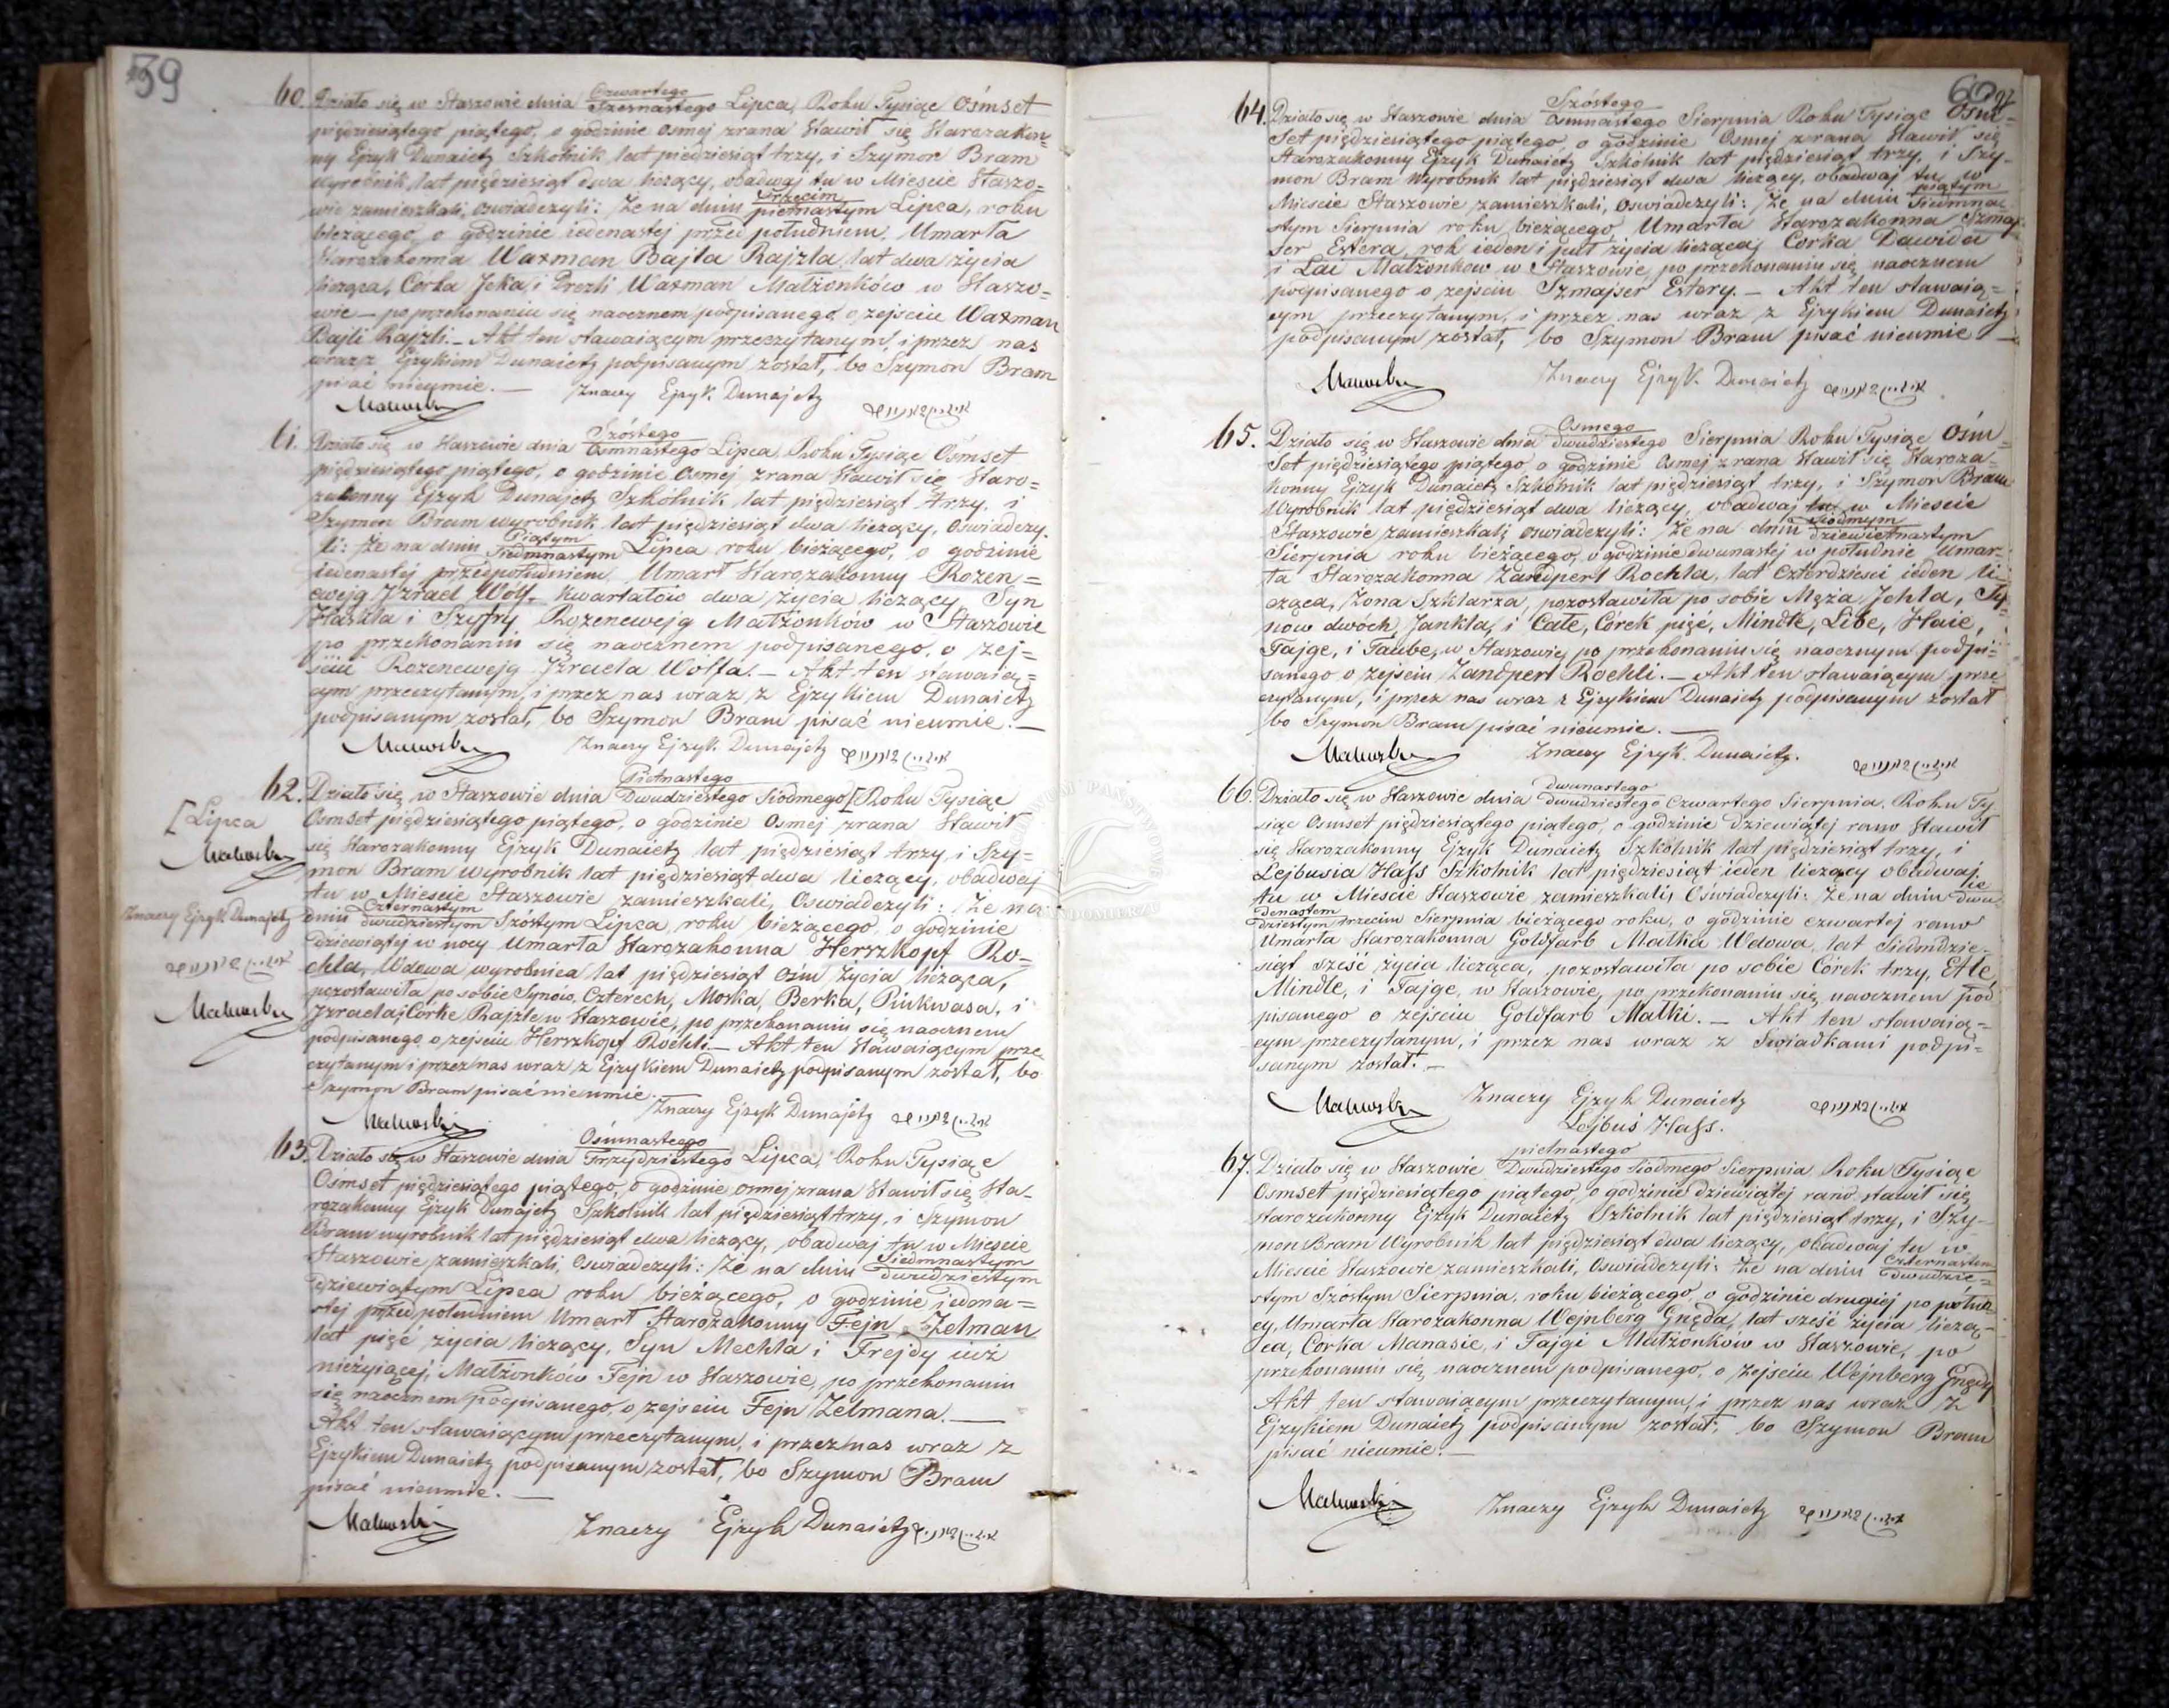 59
60. Działo się w Staszowie dnia Czwartego
Szesnastego Lipca, Roku Tysiąc Ośmset
piędziesiątego piątego, o godzinie osmej zrana Stawił się Starozakon=
ny Ejzyk Dunaietz Szkolnik, lat piedziesiąt trzy, i Szymon Bram
wyrobnik, lat pięździesiąt dwa liczący, obadwaj tu w Mieście Staszo=
wie zamieszkali, oswiadczyli: Że na dniu Trzecim
pietnastym Lipca, roku
bieżącego, o godzinie iedenastej przed południem, Umarła
Starozakonna Waxman Bajla Rajzla, lat dwa życia
licząca, Corka Jcka i Drezli Waxman Małżonków w Staszo=
wie – po przekonaniu się naocznem podpisanego, o zejsciu Waxman
Bajli Rajzli. – Akt ten stawaiącym przeczytanym, i przez nas
wraz z Ejzykiem Dunaietz podpisanym został, bo Szymon Bram
pisać nieumie. –
Znaczy Ejzyk Dunajetz
61. Działo się w Staszowie dnia Szóstego
Osmnastego Lipca, Roku Tysiąc Ośmset
pięździesiątego piątego, o godzinie Osmej zrana Stawił się Staro=
zakonny Ejzyk Dunajetz Szkólnik, lat pięździesiąt trzy, i
Szymon Bram wyrobnik lat pięździesiąt dwa liczący, Oswiadczy
li: Że na dniu Piątym
Siedmnastym Lipca roku bieżącego, o godzinie
iedenastej przedpołudniem, Umarł Starozakonny Rozen=
cwejg Jzrael Wolf, kwartałów dwa życia liczący, Syn
Haskla i Szyfry Rozencwejg Małżonkow w Staszowie
po przekonaniu się naocznem podpisanego, o zej=
ściu Rozencwejg Jzraela Wolfa. – Akt ten stawaią=
cym przeczytanym, i przez nas wraz z Ejzykiem Dunaietz
podpisanym został, bo Szymon Bram pisać nieumie. –
Znaczy Ejzyk Dunajetz
62. Działo się w Staszowie dnia Pietnastego
Dwudziestego Siodmego [ Roku Tysiąc
[ Lipca
Osmset pięździesiątego piątego, o godzinie Osmej zrana Stawił
się Starozakonny Ejzyk Dunaietz lat pięździesiąt trzy, i Szy=
mon Bram wyrobnik lat pięździesiąt dwa liczący, obadwaj
tu w Mieście Staszowie zamieszkali, Oswiadczyli: Że na
Znaczy Ejzyk Dunajetz
dniu Czternastym
dwudziestym Szóstym Lipca, roku bieżącego, o godzinie
dziewiątej w nocy Umarła Starozakonna Herszkopf Ro=
chla, Wdowa wyrobnica lat pięździesiąt ośm życia licząca,
pozostawiła po sobie Synów, Czterech, Moska, Berka, Pinkwasa, i
Jzraela, i Córkę Rajzle w Staszowie, po przekonaniu się naocznem
podpisanego, o zejsciu Herszkopf Rochli. – Akt ten stawaiącym prze
czytanym i przez nas wraz z Ejzykiem Dunaietz podpisanym został, bo
Szymon Bram pisać nieumie.
Znaczy Ejzyk Dunajetz
63. Działo się w Staszowie dnia Ośmnastego
Trzydziestego Lipca, Roku Tysiąc
Ośmset pięździesiątego piątego, o godzinie osmej zrana Stawił się Sta=
rozakonny Ejzyk Dunajetz Szkolnik lat pięździesiąt trzy, i Szymon
Bram wyrobnik lat pięździesiąt dwa liczący, obadwaj tu w Mieście
Staszowie zamieszkali, Oswiadczyli: Że na dniu Siedmnastym
dwudziestym
dziewiątym Lipca roku bieżącego, o godzinie iedena=
stej przed południem Umarł Starozakonny Fejn Zelman
lat pięć życia liczący, Syn Mechla i Frejdy iuż
nieżyiącej, Małżonków Fejn w Staszowie, po przekonaniu
się naocznem podpisanego, o zejsciu Fejn Zelmana. –
Akt ten stawaiącym przeczytanym, i przez nas wraz z
Ejzykiem Dunaietz podpisanym został, bo Szymon Bram
pisać nieumie. –
Znaczy Ejzyk Dunaietz
60
64. Działo się w Staszowie dnia Szóstego
Osmnastego Sierpnia Roku Tysiąc Ośm=
Set pięździesiątego piątego, o godzinie Osmej zrana Stawił się
Starozakonny Ejzyk Dunaietz Szkolnik lat pięździesiąt trzy, i Szy=
mon Bram Wyrobnik lat pięździesiąt dwa liczący, obadwaj tu w
Mieście Staszowie zamieszkali, Oswiadczyli: Że na dniu piątym
Siedmna=
stym Sierpnia roku bieżącego, Umarła Starozakonna Szmaj
ser Estera, rok ieden i puł życia liczącaj Corka Dawida
i Lai Małżonkow w Staszowie, po przekonaniu się naocznem
podpisanego o zejsciu Szmajser Estery. – Akt ten stawaią=
cym przeczytanym, i przez nas wraz z Ejzykiem Dunaietz
podpisanym został, bo Szymon Bram pisać nieumie –
Znaczy Ejzyk Dunaietz
65. Działo się w Staszowie dnia Osmego
dwudziestego Sierpnia Roku Tysiąc Ośm=
Set pięździesiątego piątego, o godzinie Osmej zrana Stawił się Staroza=
konny Ejzyk Dunaietz Szkolnik lat pięździesiąt trzy, i Szymon Bram
Wyrobnik lat pięździesiąt dwa liczący, obadwaj tu w Mieście
Staszowie zamieszkali, oswiadczyli: Że na dniu Siódmym
dziewietnastym
Sierpnia roku bieżącego, o godzinie dwunastej w południe Umar=
ła Starozakonna Zandpert Rochla, lat Czterdzieści ieden li=
cząca, Żona Szklarza, pozostawiła po sobie Męża Jchla, Sy=
nów dwóch, Jankla, i Cale, Córek pięć, Mindle, Libe, Haie,
Fajge, i Taube, w Staszowie, po przekonaniu się naocznym podpi=
sanego o zejsciu Zandpert Rochli. – Akt ten stawaiącym prze
czytanym, i przez nas wraz z Ejzykiem Dunaietz podpisanym został
bo Szymon Bram pisać nieumie. –
Znaczy Ejzyk Dunaietz.
66. Działo się w Staszowie dnia dwunastego
dwudziestego Czwartego Sierpnia, Roku Ty
siąc Osmset pięździesiątego piątego, o godzinie dziewiątej rano Stawił
się Starozakonny Ejzyk Dunaietz Szkolnik lat pięździesiąt trzy, i
Lejbusia Hass Szkolnik lat pięździesiąt ieden liczący obadwaj
tu w Mieście Staszowie zamieszkali, Oswiadczyli: Że na dniu ie
dwu
denastem
dziestym trzecim Sierpnia bieżącego roku, o godzinie czwartej rano
Umarła Starozakonna Goldfarb Małka Wdowa, lat Siedmdzie=
siąt sześć życia licząca, pozostawiła po sobie Córek trzy, Etle,
Mindle, i Fajge, w Staszowie, po przekonaniu się naocznem pod
pisanego o zejsciu Goldfarb Małki. – Akt ten stawaią=
cym przeczytanym, i przez nas wraz z Swiadkami podpi=
sanym został. –
Znaczy Ejzyk Dunaietz
Lejbuś Hass.
67. Działo się w Staszowie pietnastego
Dwudziestego Siodmego Sierpnia Roku Tysiąc
Osmset pięździesiątego piątego, o godzinie dziewiątej rano stawił się
starozakonny Ejzyk Dunaietz Szkólnik lat pięździesiąt trzy, i Szy=
mon Bram Wyrobnik lat pięździesiąt dwa liczący, obadwaj tu w
Mieście Staszowie zamieszkali, Oswiadczyli: Że na dniu Czternastem
dwudzie=
stym Szóstym Sierpnia, roku bieżącego, o godzinie drugiej po półno
cy, Umarła Starozakonna Wejnberg Gnęda, lat sześć życia liczą=
ca, Corka Manasie, i Fajgi Małżonków w Staszowie, po
przekonaniu się naocznem podpisanego, o zejsciu Wejnberg Gnędy
Akt ten stawaiącym przeczytanym, i przez nas wraz z
Ejzykiem Dunaietz podpisanym został, bo Szymon Bram
pisać nieumie. –
Znaczy Ejzyk Dunaietz